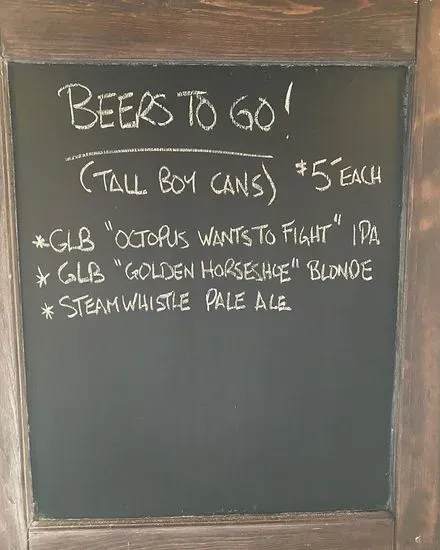 BEERS TO GO!
(TALL BOY CANS) $5- EACH
*GLB "OCTOPUS WANTS TO FIGHT" IPA
* GLB "GOLDEN HORSESHOE" BLONDE
* STEAMWHISTLE PALE ALE